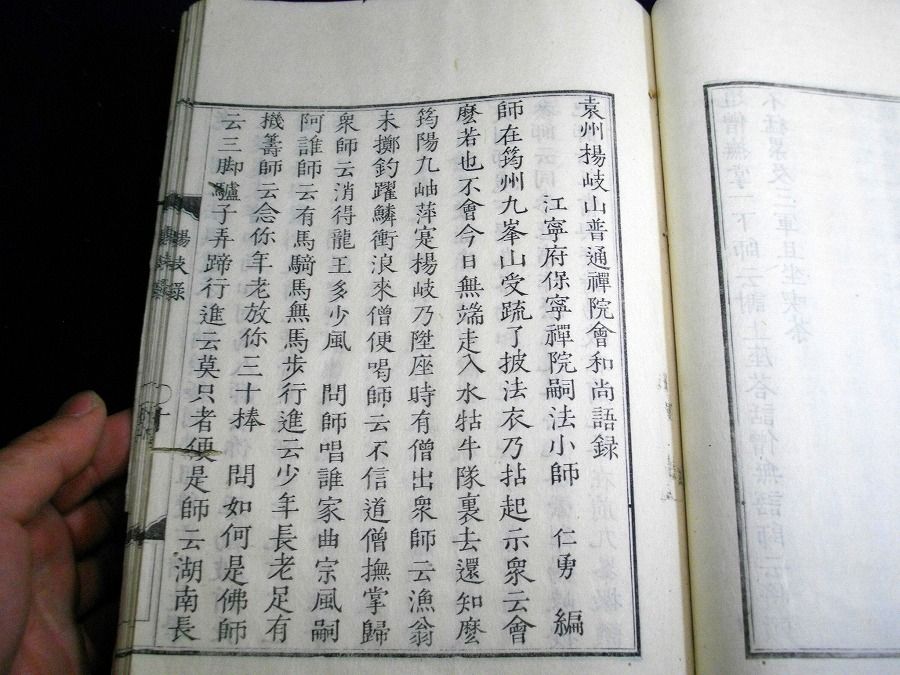 袁州揚岐山普通禪院會和尚語録
江寧府保寧禪院嗣法小師 仁勇 編
師在筠州九峯山受疏了披法衣乃拈起示衆云會
麼若也不會今日無端走入水牯牛隊裏去還知麼
筠陽九岫萍寔揚岐乃陞座時有僧出衆師云漁翁
未擲釣躍鱗衝浪來僧便喝師云不信道僧撫掌歸
衆師云消得龍王多少風 問師唱誰家曲宗風嗣
阿誰師云有馬騎馬無馬步行進云少年長老足有
機籌師云念你年老放你三十棒 問如何是佛師
云三脚驢子弄蹄行進云莫只者便是師云湖南長
揚岐録
十